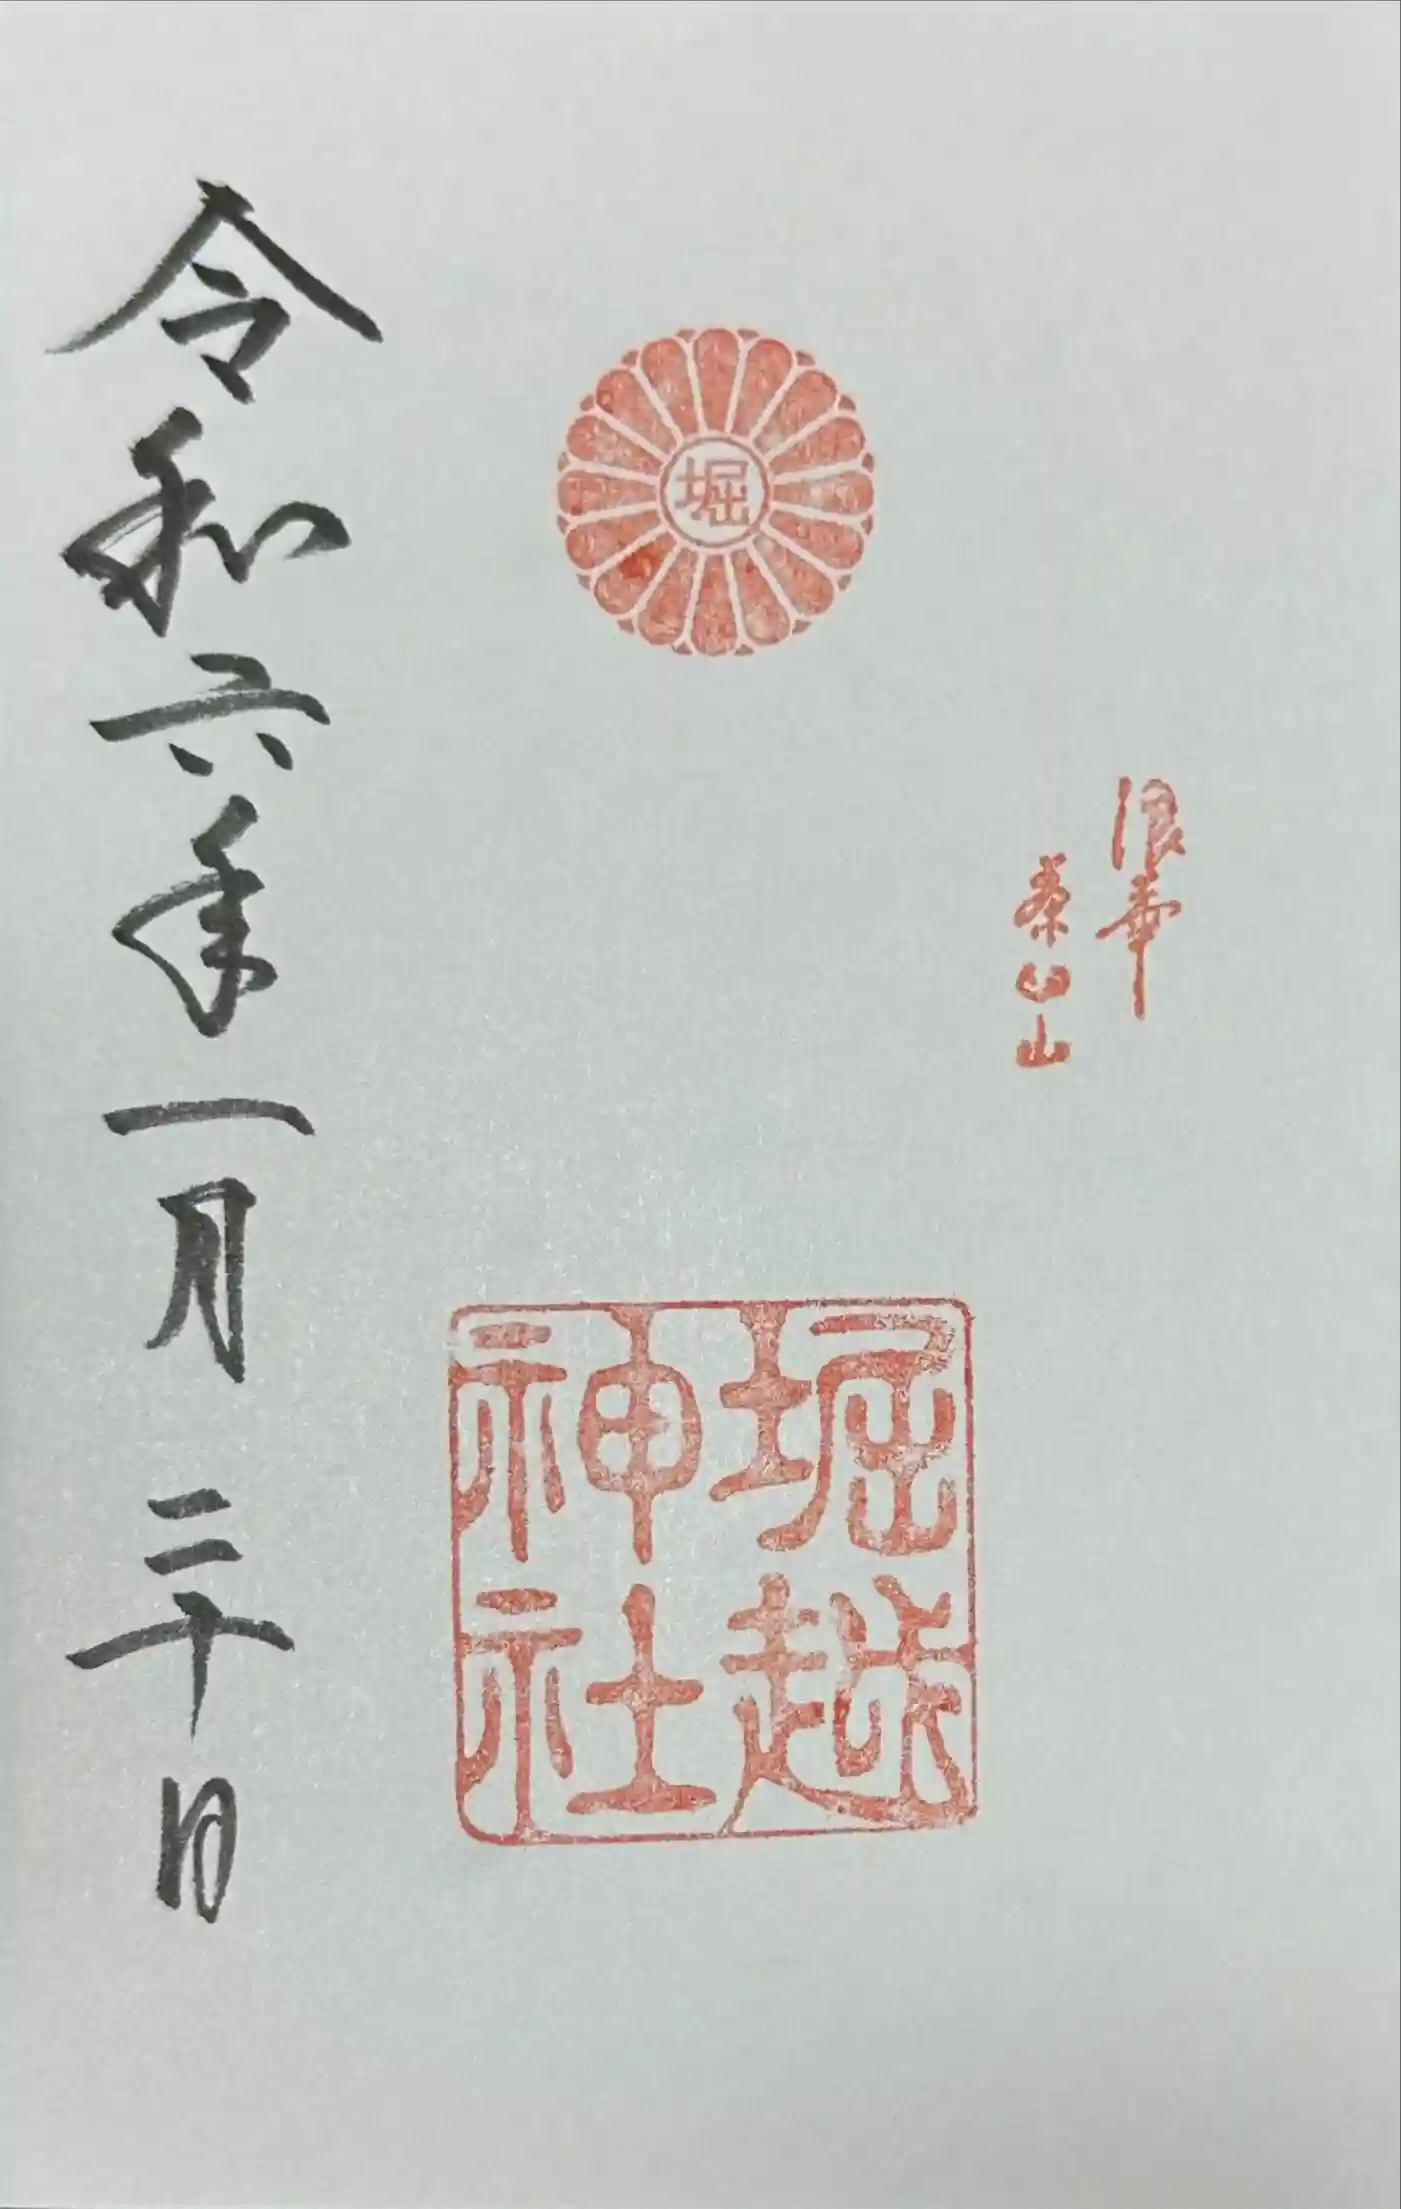 浪華
茶臼山
堀
堀越
神社
令和六年一月二十日